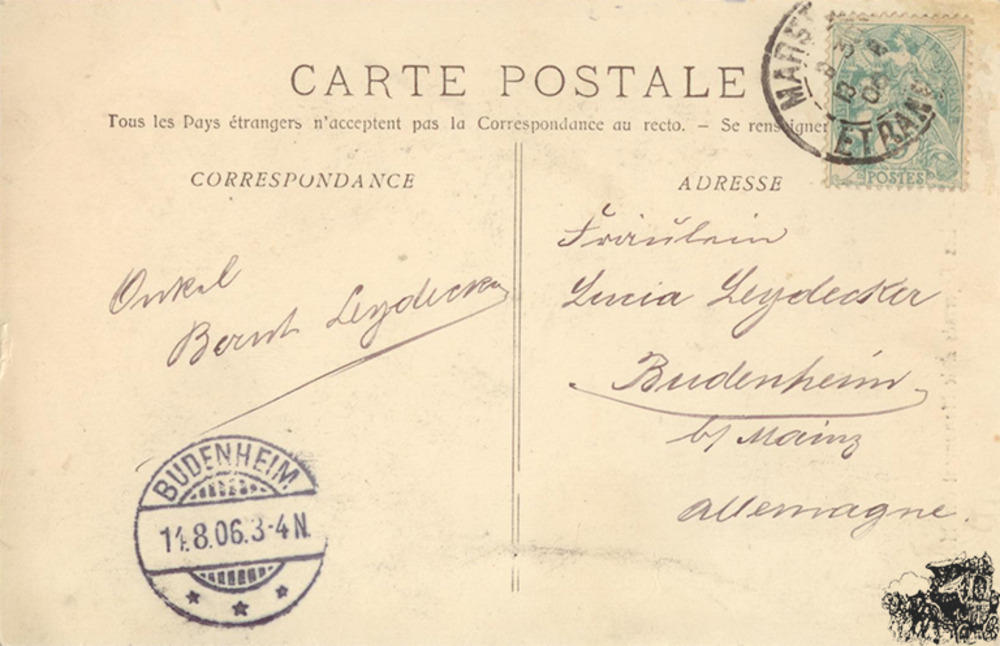 CARTE POSTALE
Tous les Pays étrangers n'acceptent pas la Correspondance au recto. – Se renseigner
CORRESPONDANCE
Onkel
Bernh Leydecker
ADRESSE
Fräulein
Lucia Leydecker
Budenheim
b/ Mainz
Allemagne.
POSTES
BUDENHEIM
8.06.3-4N.